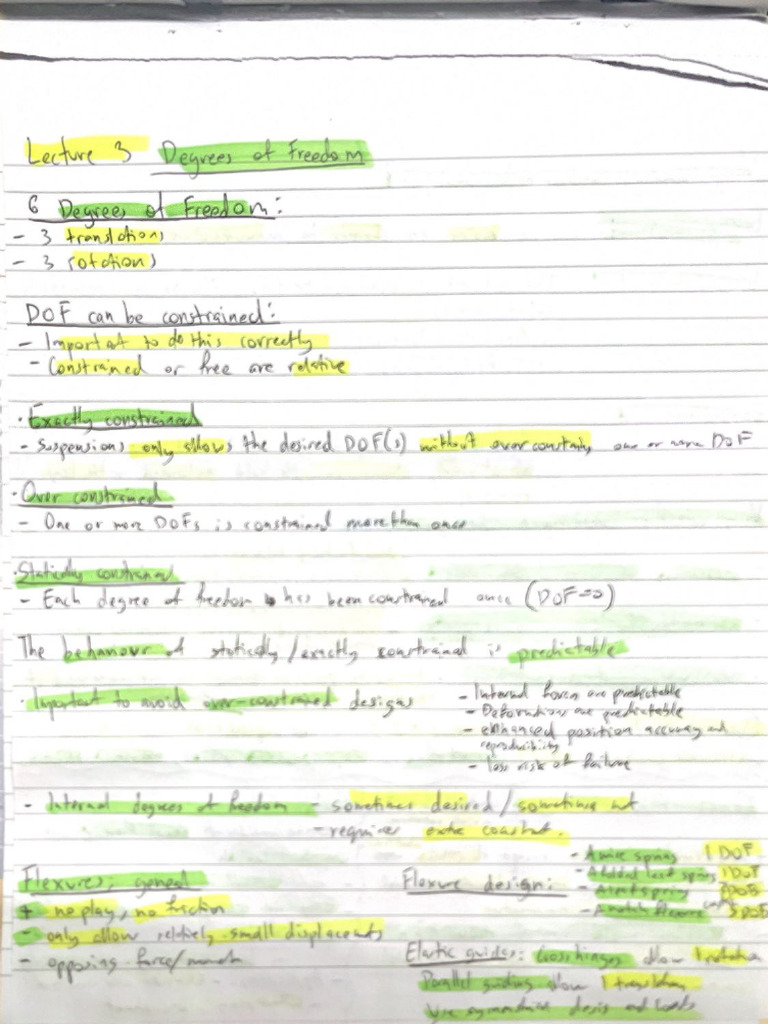 Lecture 3 Degrees of Freedom
6 Degrees of Freedom:
- 3 translations
- 3 rotations
DOF can be constrained:
- Important to do this correctly
- Constrained or free are relative
· Exactly constrained
- Suspensions only allows the desired DOF(s) without over constraining one or more DOF
· Over constrained
- One or more DOFs is constrained more than once
· Statically constrained
- Each degree of freedom has been constrained once (DOF=0)
The behaviour of statically/exactly constrained is predictable
· Important to avoid over-constrained designs
- Internal forces are predictable
- Deformations are predictable
- enhanced position accuracy and
reproducibility
- less risk of failure
- Internal degrees of freedom - sometimes desired/sometimes not
- requires extra constraint.
Flexures, general
+ no play, no friction
- only allow relatively small displacements
- opposing force/moment
Flexure design:
- A wire spring 1 DOF
- A folded leaf spring 1 DOF
- A leaf spring 3 DOF
- A notch flexure 5 DOF
Elastic guides: Cross hinges allow 1 rotation
Parallel guiding allow 1 translation
Use symmetrical design and loads